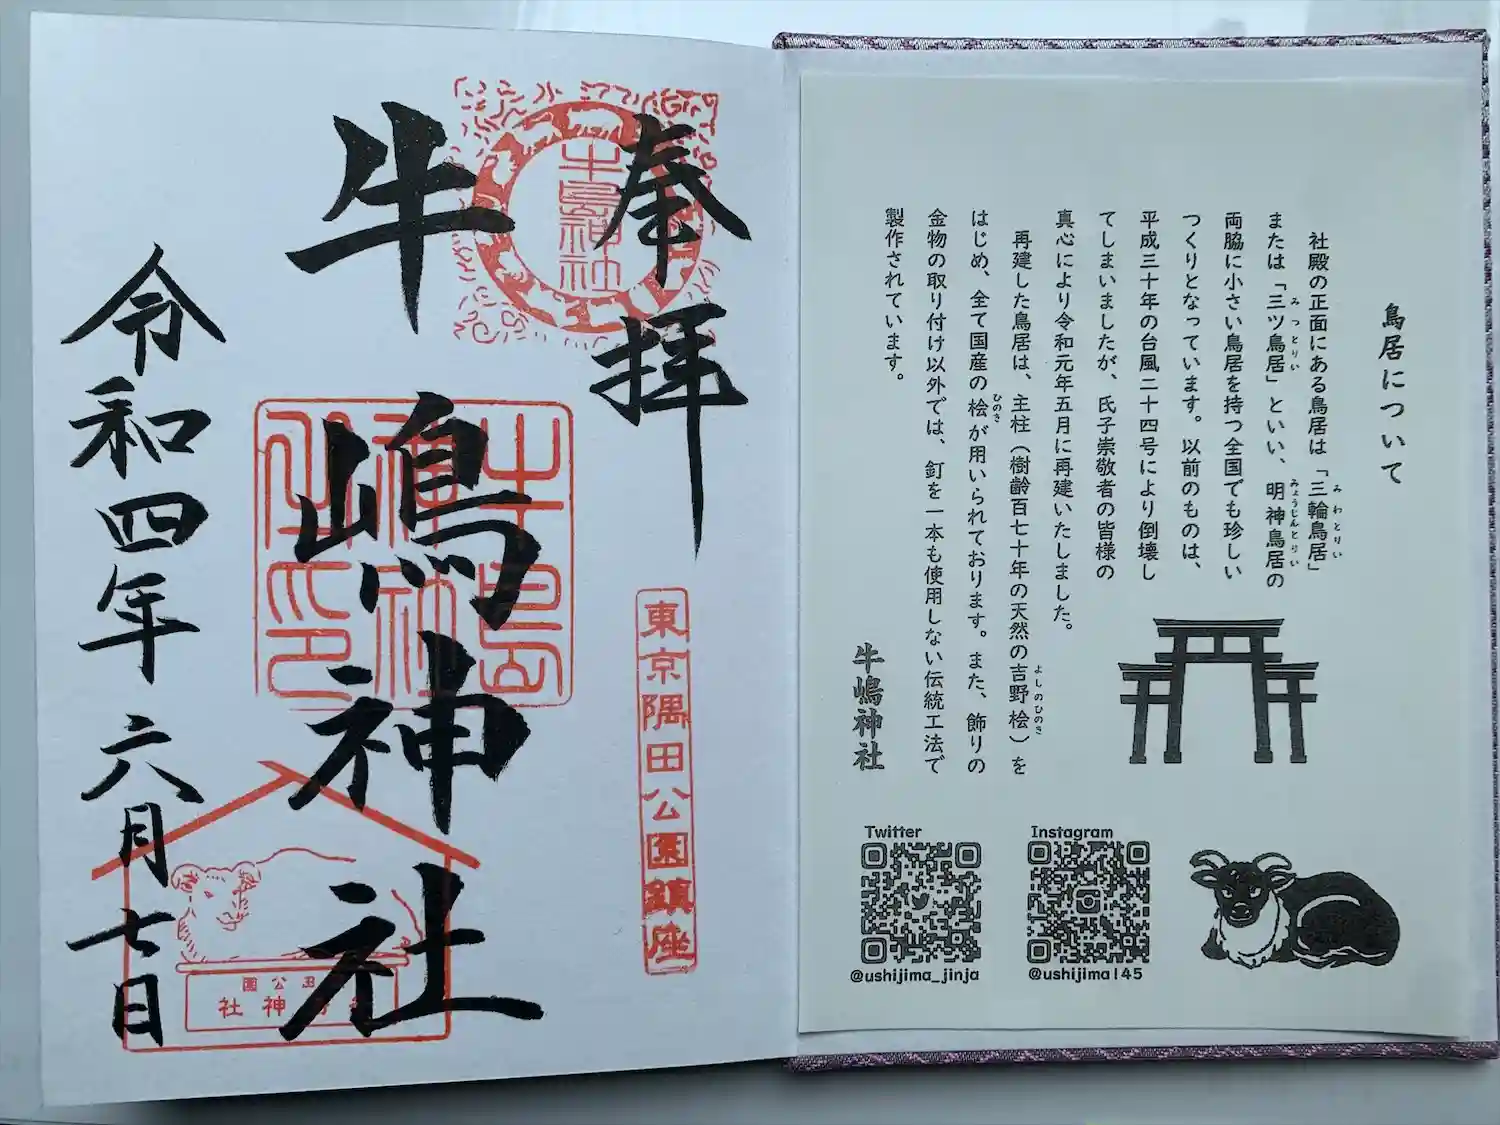 奉拝
牛嶋神社
令和四年六月七日
牛島神社
牛島
神社
之印
東京隅田公園鎮座
鳥居について
社殿の正面にある鳥居は「三輪鳥居」
みわとりい
または「三ツ鳥居」といい、明神鳥居の
みつとりい
みょうじんとりい
両脇に小さい鳥居を持つ全国でも珍しい
つくりとなっています。以前のものは、
平成三十年の台風二十四号により倒壊し
てしまいましたが、氏子崇敬者の皆様の
真心により令和元年五月に再建いたしました。
再建した鳥居は、主柱（樹齢百七十年の天然の吉野桧）を
よしのひのき
はじめ、全て国産の桧が用いられております。また、飾りの
ひのき
金物の取り付け以外では、釘を一本も使用しない伝統工法で
製作されています。
牛嶋神社
Twitter
@ushijima_jinja
Instagram
@ushijima145